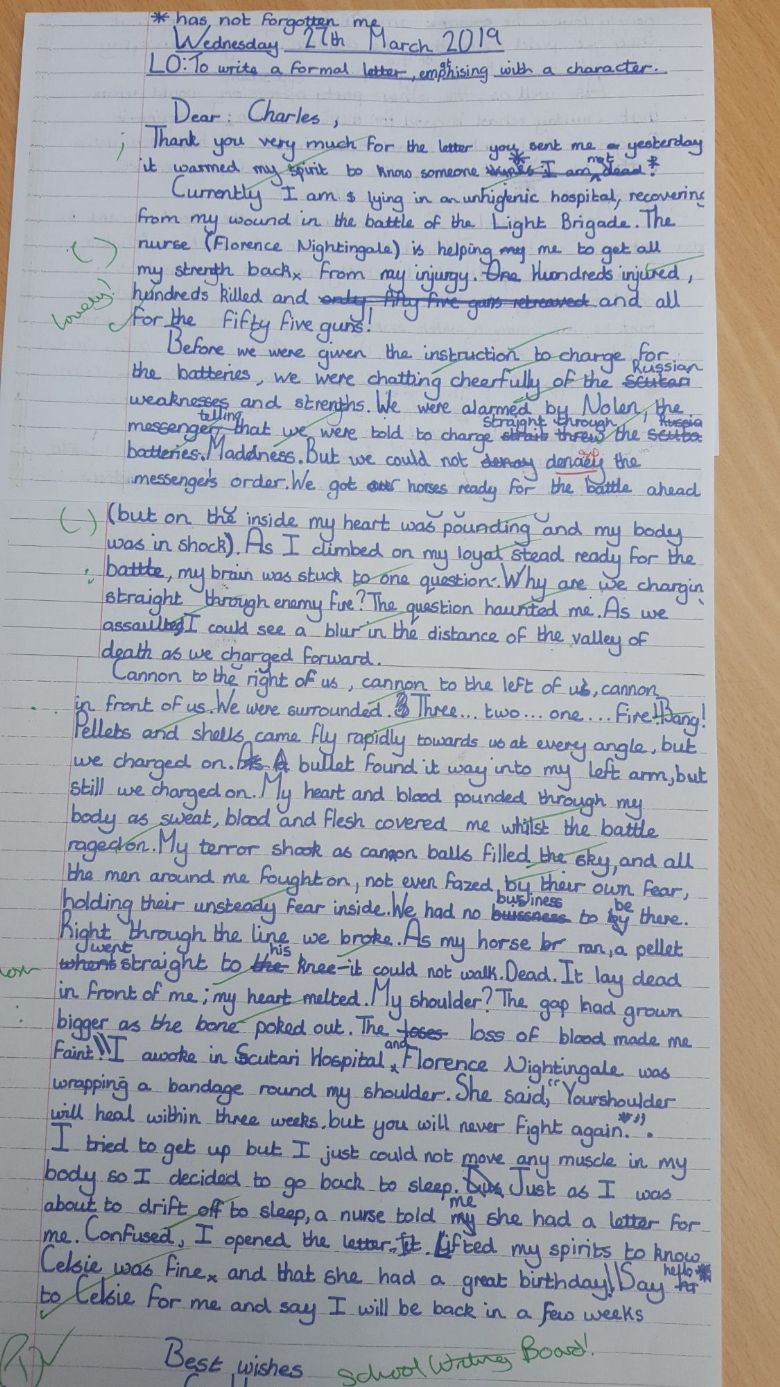 * has, not forgotten me
Wednesday 27th March 2019
LO: To write a formal letter, emphising with a character.
Dear: Charles,
; Thank you very much for the letter you sent me yesterday
it warmed my spirit to know someone * I am not dead! *
Currently I am lying in an unhigienic hospital, recovering
from my wound in the battle of the Light Brigade. The
( ) nurse (Florence Nightingale) is helping me to get all
my strength back from my injurgy. Hundreds injured,
Lovely! hundreds killed and only fifty five guns retreaved and all
for the fifty five guns!
Before we were given the instruction to charge for
the batteries, we were chatting cheerfully of the Scutari Russian
weaknesses and strenths. We were alarmed by Nolen, the
messenger, telling that we were told to charge strait threw straight through the Scuta Russia
batteries. Maddness. But we could not denay denaey the
messengers order. We got our horses ready for the battle ahead
( ) (but on the inside my heart was pounding and my body
was in shock). As I climbed on my loyal stead ready for the
battle, my brain was stuck to one question: Why are we chargin
straight through enemy fire? The question haunted me. As we
assaulted I could see a blur in the distance of the valley of
death as we charged forward.
Cannon to the right of us, cannon to the left of us, cannon
in front of us. We were surrounded. Three... two... one... Fire! Bang!
Pellets and shells came fly rapidly towards us at every angle, but
we charged on. A bullet found it way into my left arm, but
still we charged on. My heart and blood pounded through my
body as sweat, blood and flesh covered me whilst the battle
raged on. My terror shook as cannon balls filled the sky, and all
the men around me fought on, not even fazed by their own fear,
holding their unsteady fear inside. We had no buissness busliness to by be there.
Right through the line we broke. As my horse br ran, a pellet
whent went straight to the his knee - it could not walk. Dead. It lay dead
in front of me; my heart melted. My shoulder? The gap had grown
bigger as the bone poked out. The loses loss of blood made me
faint! I awoke in Scutari Hospital and Florence Nightingale was
wrapping a bandage round my shoulder. She said, "Yourshoulder
will heal within three weeks, but you will never fight again."
I tried to get up but I just could not move any muscle in my
body so I decided to go back to sleep. Just as I was
about to drift off to sleep, a nurse told my me she had a letter for
me. Confused, I opened the letter. It lifted my spirits to know
Celsie was fine, and that she had a great birthday! Say hello *
to Celsie for me and say I will be back in a few weeks
Best wishes
School Writing Board!